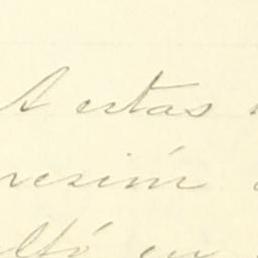 A estas
resión
ltó en